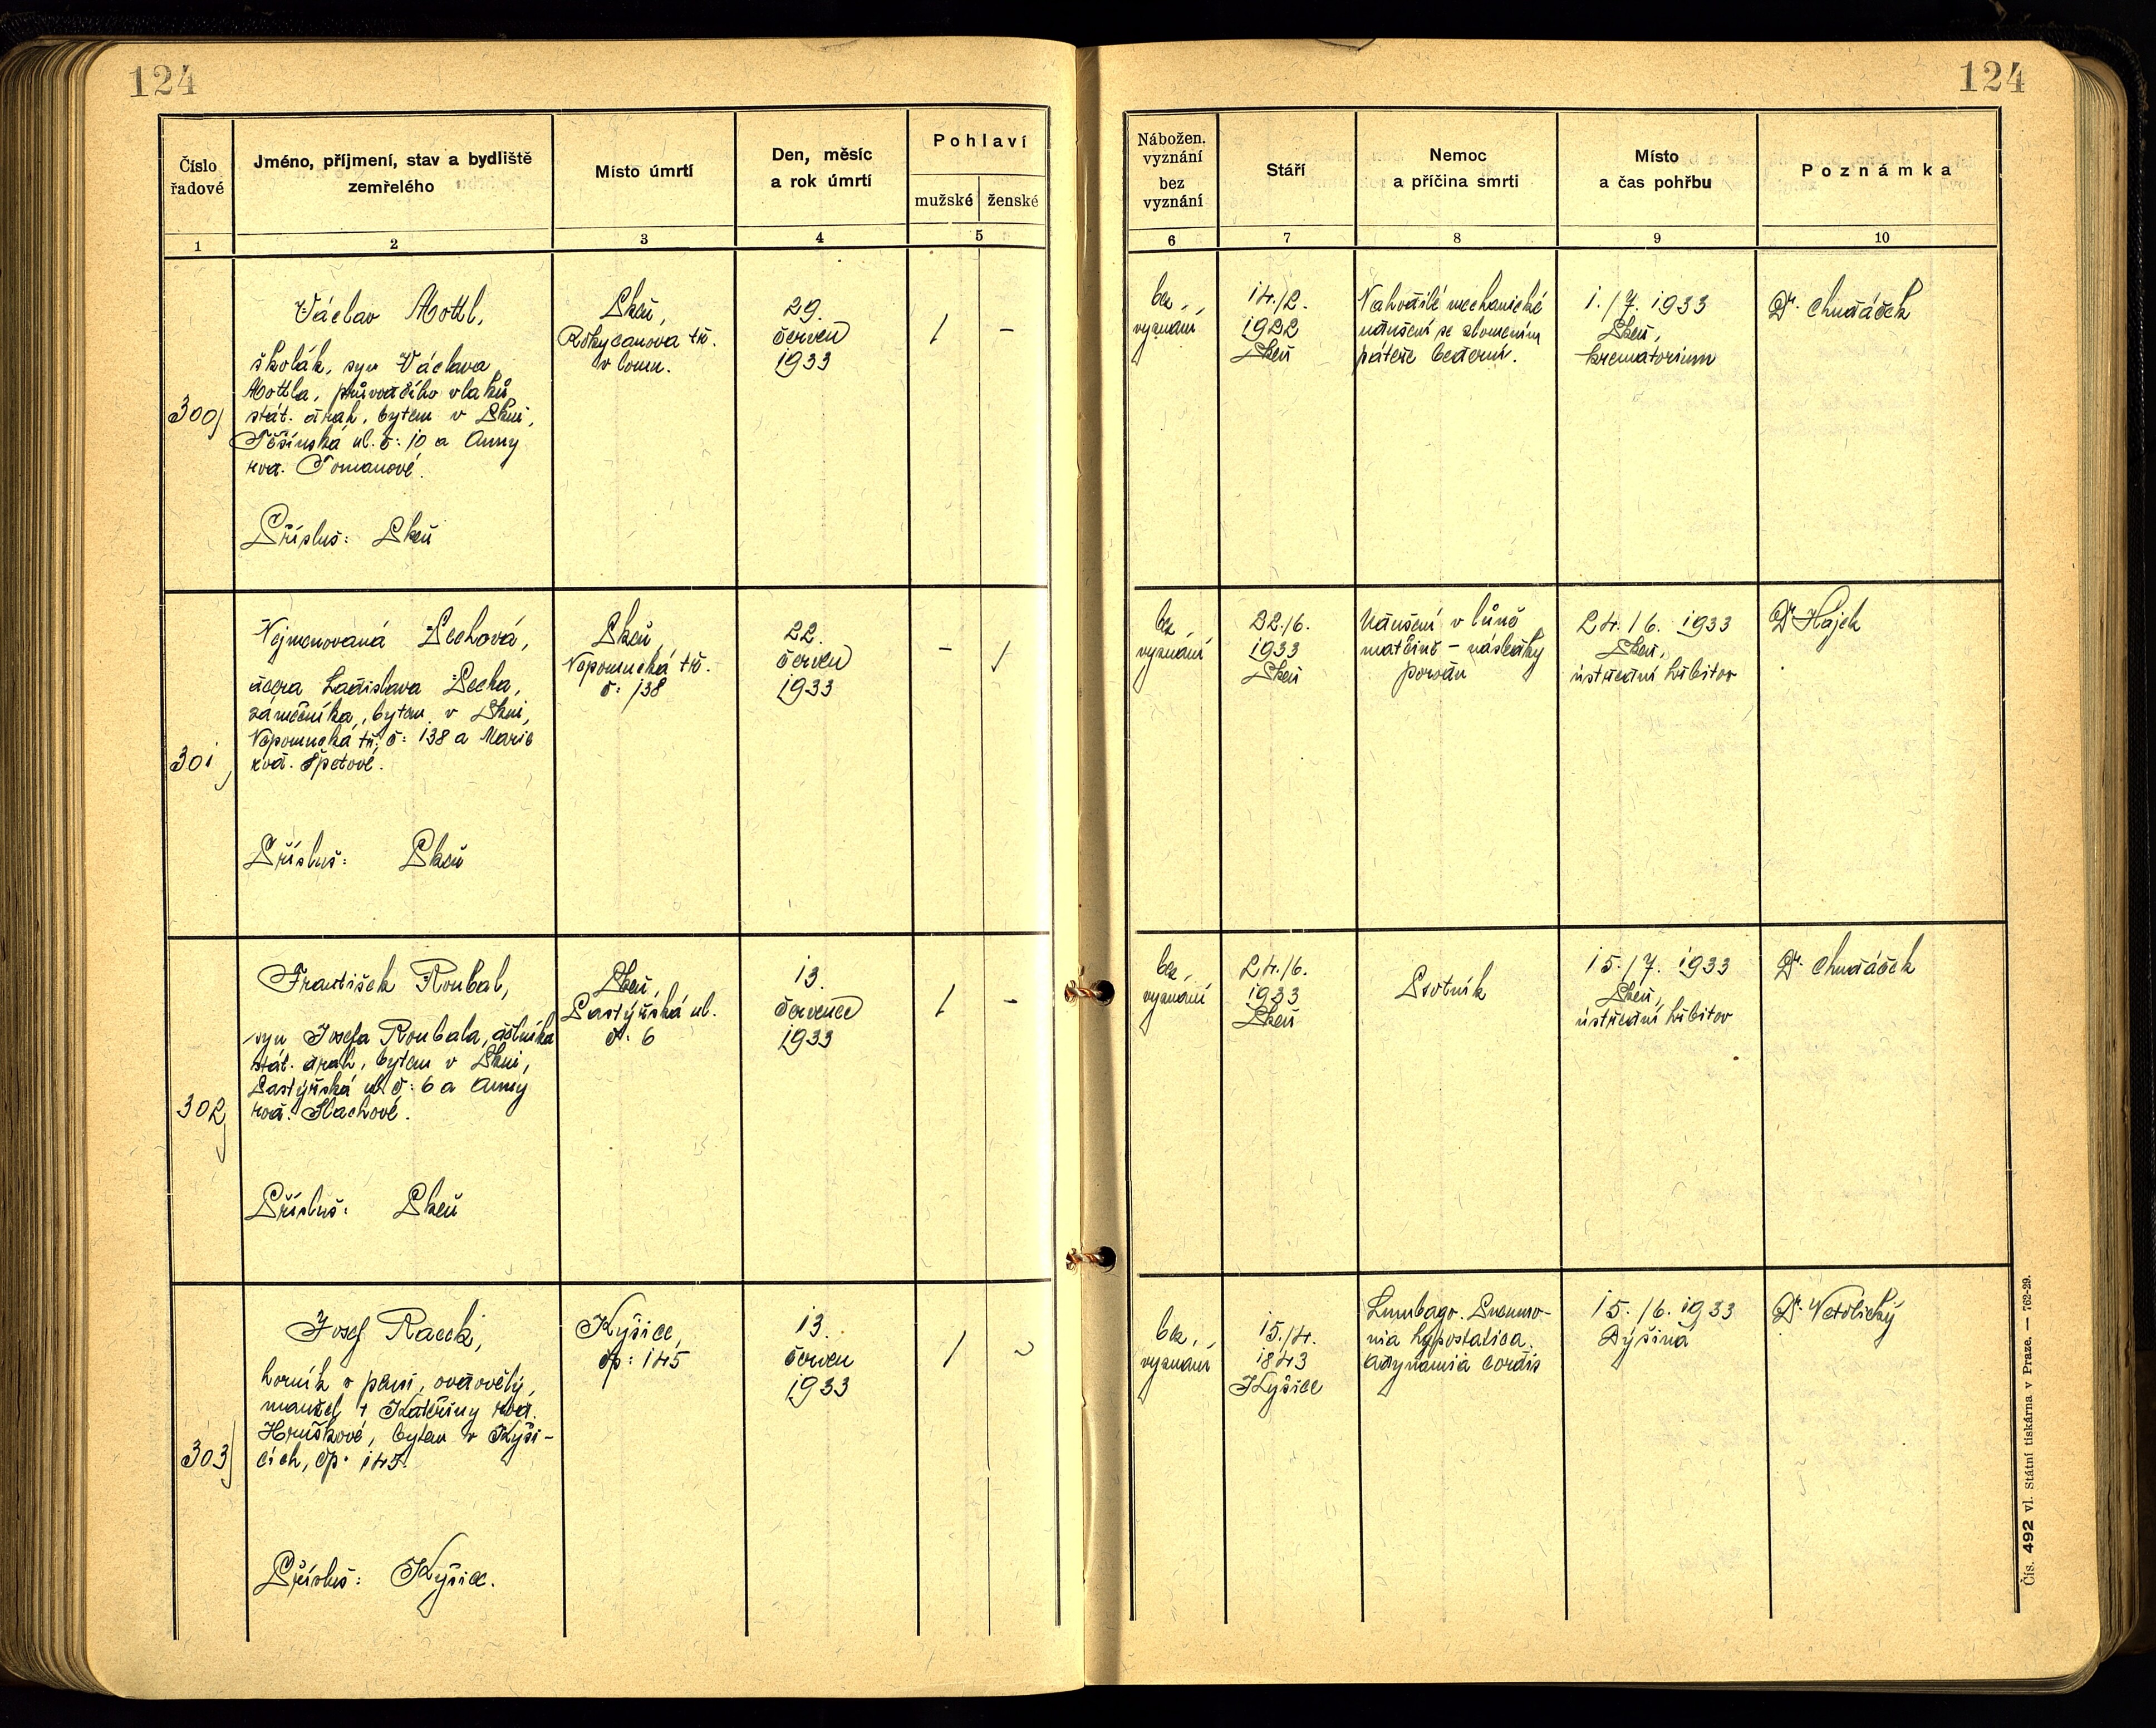 124
124
Číslo řadové
Jméno, příjmení, stav a bydliště zemřelého
Místo úmrtí
Den, měsíc a rok úmrtí
Pohlaví
mužské
ženské
Nábožen. vyznání bez vyznání
Stáří
Nemoc a příčina smrti
Místo a čas pohřbu
Poznámka
1
2
3
4
5
6
7
8
9
10
300
Václav Mottl,
školák, syn Václava
Mottla, průvodčího vlaků
stát. drah, bytem v Plzni,
Těšínská ul. č: 10 a Anny
roz. Tomanové.
Přísluš: Plzeň
Plzeň,
Rokycanova tř.
v lomu.
29.
červen
1933
/
-
bez
vyznání
14./2.
1922
Plzeň
Nahodilé mechanické
udušení se zlomením
páteře bederní.
1./7. 1933
Plzeň,
krematorium
Dr. Chudáček
301
Nejmenovaná Pechová,
dcera Ladislava Pecha,
zámečníka, bytem v Plzni,
Nepomucká tř. č: 138 a Marie
roz. Špetové.
Přísluš: Plzeň
Plzeň,
Nepomucká tř.
č: 138
22.
červen
1933
-
/
bez
vyznání
22./6.
1933
Plzeň
Udušení v lůně
matčině - následky
porodu
24./6. 1933
Plzeň,
ústřední hřbitov
Dr Hájek
302
František Roubal,
syn Josefa Roubala, dělníka
stát. drah, bytem v Plzni,
Pastýřská ul. č: 6 a Anny
roz. Hachové.
Přísluš: Plzeň
Plzeň,
Pastýřská ul.
č: 6
13.
červenec
1933
/
-
bez
vyznání
24./6.
1933
Plzeň
Psotník
15./7. 1933
Plzeň,
ústřední hřbitov
Dr. Chudáček
303
Josef Racek,
horník v pensi, ovdovělý,
manžel + Kateřiny roz.
Hruškové, bytem v Kyši-
cích, čp. 145.
Přísluš: Kyšice.
Kyšice,
čp: 145
13.
červen
1933
/
bez
vyznání
15./4.
1843
Kyšice
Lumbago. Pneumo-
nia hypostatica.
Adynamia cordis
15./6. 1933
Dýšina
Čís. 492 vl. Státní tiskárna v Praze. — 762-29.